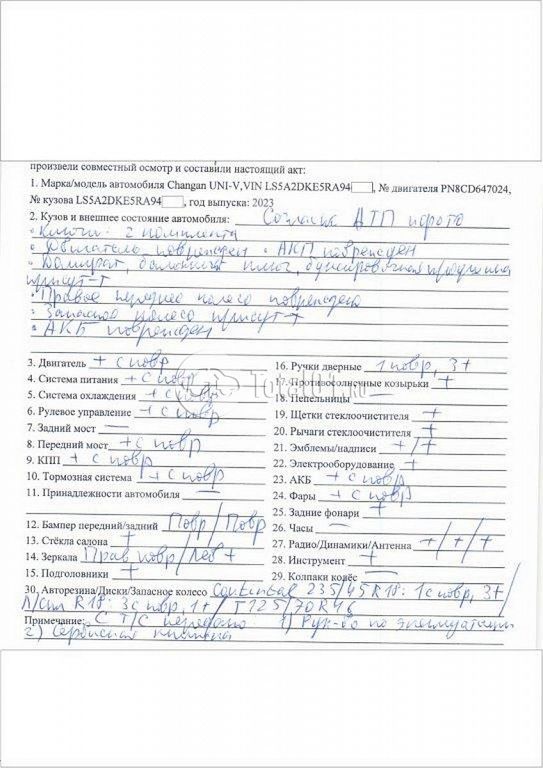 произвели совместный осмотр и составили настоящий акт:
1. Марка/модель автомобиля Changan UNI-V,VIN LS5A2DKE5RA94 , № двигателя PN8CD647024,
№ кузова LS5A2DKE5RA94 , год выпуска: 2023
2. Кузов и внешнее состояние автомобиля: Согласно ДТП
• Ключи: 2 комплекта
• Двигатель поврежден • АКП поврежден
• Домкрат, балонный ключ, буксировочная проушина
присут-т
• Правое переднее колесо повреждено
• Запасное колесо присут-т
• АКБ поврежден
3. Двигатель + с повр
4. Система питания + с повр
5. Система охлаждения + с повр
6. Рулевое управление + с повр
7. Задний мост —
8. Передний мост + с повр
9. КПП + с повр
10. Тормозная система + с повр
11. Принадлежности автомобиля —
12. Бампер передний/задний Повр / Повр
13. Стёкла салона +
14. Зеркала Прав повр / Лев +
15. Подголовники +
16. Ручки дверные 1 повр, 3+
17. Противосолнечные козырьки +
18. Пепельницы —
19. Щетки стеклоочистителя +
20. Рычаги стеклоочистителя +
21. Эмблемы/надписи +/+
22. Электрооборудование +
23. АКБ + с повр
24. Фары + с повр
25. Задние фонари +
26. Часы —
27. Радио/Динамики/Антенна +/+/+
28. Инструмент +
29. Колпаки колёс —
30. Авторезина/Диски/Запасное колесо Continental 235/45 R18: 1 с повр, 3+/
Л/Спл R18: 3 с повр, 1+/ T125/70R16
Примечание: С Т/С передано 1) Рук-во по эксплуатации
2) Сервисная книжка